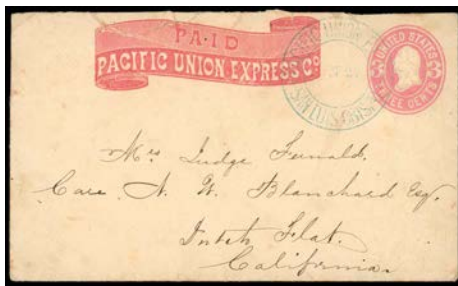 PAID
PACIFIC UNION EXPRESS Co
UNITED STATES
THREE CENTS
Mrs Judge Fernald.
Care N. W. Blanchard Esq.
Dutch Flat.
California.